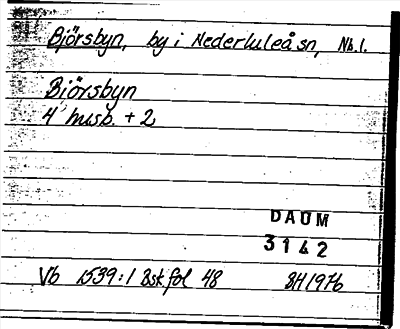 Björsbyn, by i Nederluleå sn, Nb.l.
Björsbyn
4 husb. + 2
DAUM
3142
Vb 1539:1 Bskfol 48 BH1976